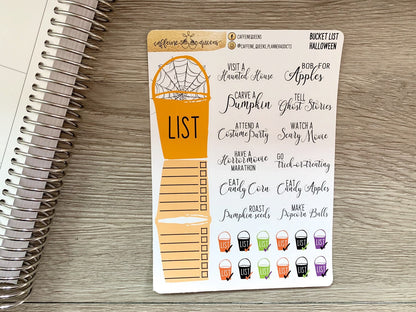 caffeine queens
CAFFEINEQUEENS
@CAFFEINE_QUEENS_PLANNERADDICTS
BUCKET LIST
HALLOWEEN
LIST
VISIT A
Haunted House
BOB FOR
Apples
CARVE A
Pumpkin
TELL
Ghost Stories
ATTEND A
Costume Party
WATCH A
Scary Movie
HAVE A
Horror movie
MARATHON
GO
Trick-or-treating
EAT
Candy Corn
EAT
Candy Apples
ROAST
Pumpkin seeds
MAKE
Popcorn Balls
LIST LIST LIST LIST LIST LIST
LIST LIST LIST LIST LIST LIST